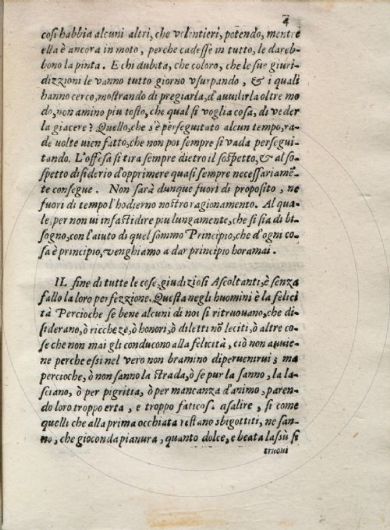 4
cosi habbia alcuni altri, che volentieri, potendo, mentre
ella è ancora in moto, perche cadesse in tutto, le dareb-
bono la pinta. E chi dubita, che coloro, che le sue giuri-
dizzioni le vanno tutto giorno vsurpando, & i quali
hanno cerco, mostrando di pregiarla, d'auuilirla oltre mo
do, non amino piu tosto, che qual si voglia cosa, di veder
la giacere? Quello, che s'è perseguitato alcun tempo, ra-
de uolte uien fatto, che non poi sempre si vada persegui-
tando. L'offesa si tira sempre dietro il sospetto, & al so-
spetto disiderio d'opprimere quasi sempre necessariamẽ
te consegue. Non sarà dunque fuori di proposito, ne
fuori di tempo l'hodierno nostro ragionamento. Al qua
le, per non ui infastidire piu lungamente, che si sia di bi-
sogno, con l'aiuto di quel sommo Principio, che d'ogni co
sa è principio, venghiamo a dar principio horamai.
IL fine di tutte le cose, giudiziosi Ascoltanti, è senza
fallo la loro perfezzione. Questa negli huomini è la felici
tà Percioche se bene alcuni di noi si ritruouano, che di-
siderano, ò riccheze, ò honori, ò diletti nõ leciti, ò altre co
se che non mai gli conducono alla felicità, ciò non auuie-
ne perche essi nel vero non bramino diperuenirui; ma
percioche, ò non sanno la strada, ò se pur la sanno, la la-
sciano, ò per pigritia, ò per mancanza d'animo, paren-
do loro troppo erta, e troppo faticosa a salire, si come
quelli che alla prima occhiata restano sbigottiti, ne san-
no, che gioconda pianura, quanto dolce, e beata lassù si
truoui